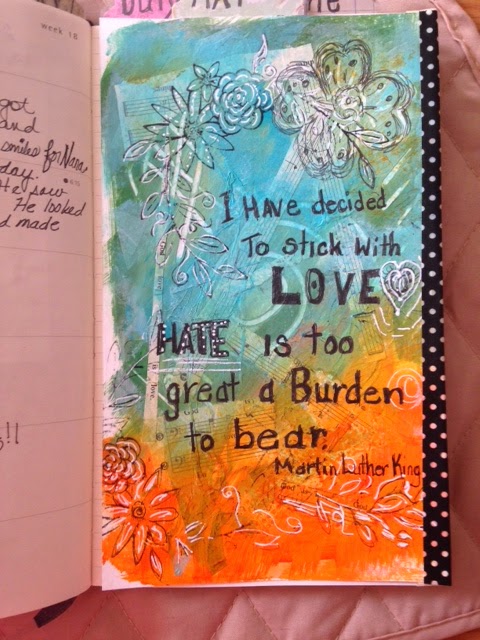 week 18
got
and
smiles for Nana
day.
He saw
He looked
made
!!
I HAVE decided
To stick with
LOVE
HATE is too
great a Burden
to bear.
Martin Luther King